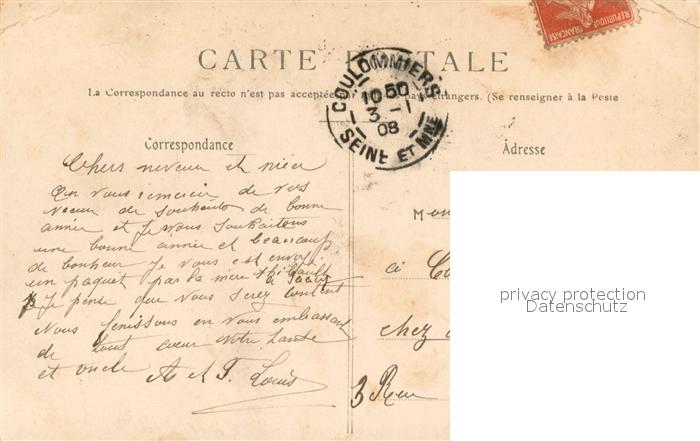 REPUBLIQUE FRANÇAISE
CARTE POSTALE
La Correspondance au recto n'est pas acceptée par pays étrangers. (Se renseigner à la Poste
COULOMMIERS
10 50
3 - 1
08
SEINE ET MNE
Correspondance
Chers neveux et nièce
On vous remercie de vos
vœux de souhaits de bonne
année et Je vous souhaitons
une bonne année et beaucoup
de bonheur Je vous est envoyé
un paquet par la mère Thibault
Je pense que vous serez content
Nous finissons en vous embrassant
de tout cœur votre tante
et oncle A et F. Louis
Adresse
Mon
à Co
chez
3 Rue
privacy protection
Datenschutz